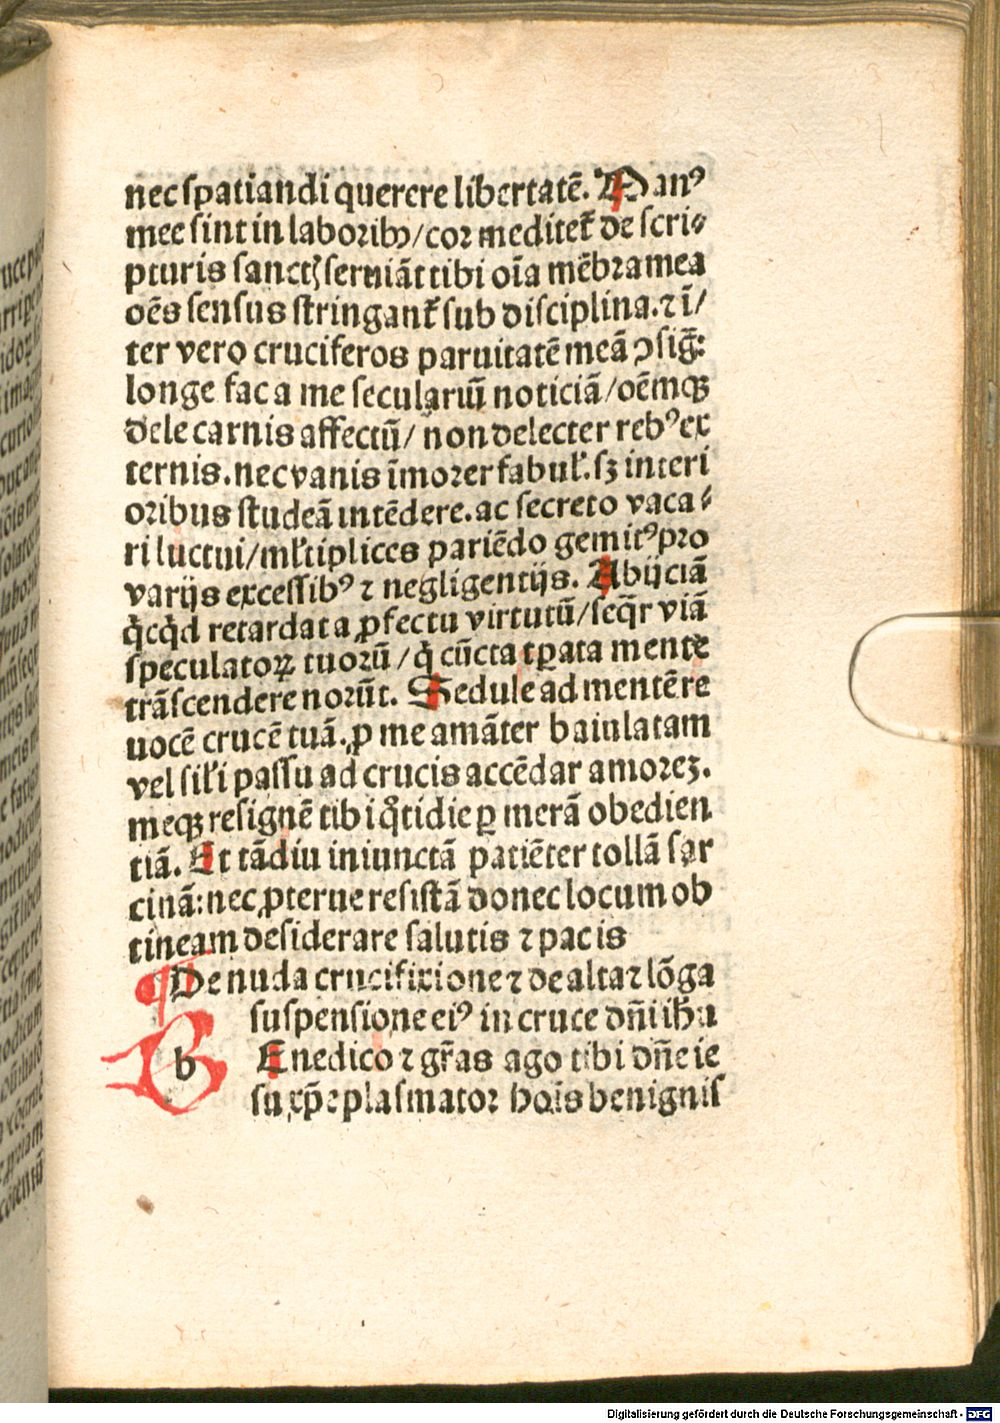 nec spatiandi querere libertatē. Manꝰ
mee sint in laboribꝫ/cor meditet᷑ de scri⸗
pturis sanctꝭ seruiāt tibi oīa mēbra mea
oēs sensus stringant᷑ sub disciplina.⁊ ī/
ter vero cruciferos paruitatē meā ꝯsig̃:
longe fac a me seculariū noticiā/oēmqꝫ
dele carnis affectū/ ñon delecter rebꝰ ex
ternis.nec vanis īmorer fabul᷑. sꝫ interi
oribus studeā intēdere.ac secreto vaca⸗
ri luctui/ml᷑tiplices pariēdo gemitꝰ pro
varijs excessibꝰ ⁊ negligentijs. Abijciā
q̇cq̇d retardat a ꝓfectu virtutū/seq̄r viā
speculatoꝝ tuorū/q̇ cūcta tꝑata mente
trāscendere norūt. Sedule ad mentē re
uocē crucē tuā.ꝓ me amāter baiulatam
vel sil᷑i passu ad crucis accēdar amorez.
meqꝫ resignē tibi qͦtidie ꝑ merā obedien
tiā. Et tādiu iniunctā patiēter tollā sar
cinā:nec ꝓterue resistā donec locum ob
tineam desiderare salutis ⁊ pacis
¶ De nuda crucifixione ⁊ de alta ⁊ lōga
suspensione eiꝰ in cruce dñi ihu
b Enedico ⁊ gr̃as ago tibi dñe ie
su xp̄e plasmator hoīs benignis